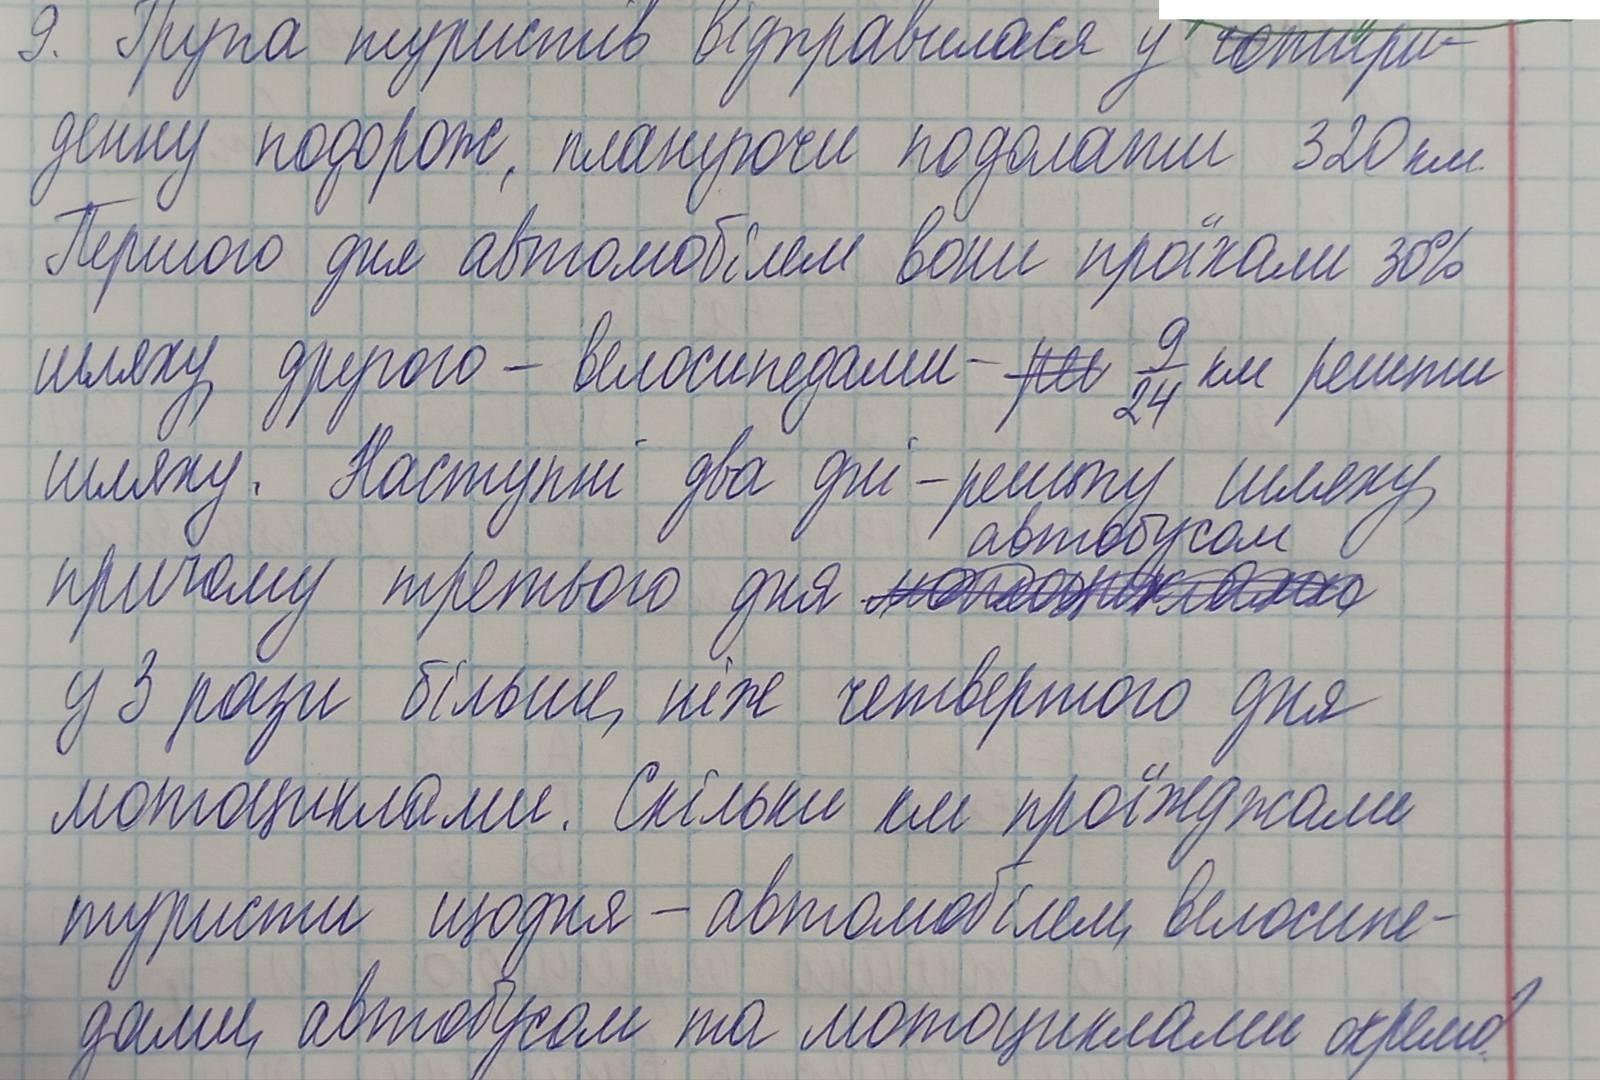 9. Група туристів відправилася у чотири-
денну подорож, плануючи подолати 320 км.
Першого дня автомобілем вони проїхали 30%
шляху, другого – велосипедами – 9/24 км решти
шляху. Наступні два дні – решту шляху,
автобусом
причому третього дня
у 3 рази більше, ніж четвертого дня
мотоциклами. Скільки км проїжджали
туристи щодня – автомобілем, велосипе-
дами, автобусом та мотоциклами окремо?